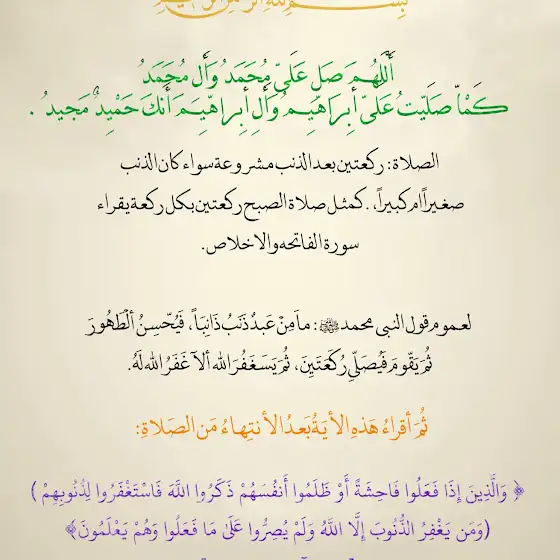 بسم الله الرحمن الرحيم
أَللهُمَ صَلِ عَلىّ مُحَمَدُ وَأل مُحَمَدُ
كَمْاّ صَليّتُ عَلىّ أبراهَيمُ وَألِ أبراهَيَم أَنكَ حَمْيِدٌ مَجيدُ .
الصلاة: ركعتين بعد الذنب مشروعة سواء كان الذنب
صغيراً أم كبيراً، . كمثل صلاة الصبح ركعتين بكل ركعة يقراء
سورة الفاتحه والاخلاص.
لعموم قول النبي محمد ﷺ: ماَمِنْ عَبدٌ ذَنبُ ذَانِباً، فَيُحّسِنُ ألّطَهُورَ
ثُمَ يَقّومَ فَيُصَلّي رُكَعَتَينَ، ثُمَ يَسَغفُرَ الله ألآ غَفَرُ الله لَهُ.
ثُمَ أقراءُ هَذهِ الأيَةُ بَعدُ الأنتهاءُ مَن الصَلاةِ:
﴿ وَالَّذِينَ إِذَا فَعَلُوا فَاحِشَةً أَوْ ظَلَمُوا أَنفُسَهُمْ ذَكَرُوا اللَّهَ فَاسْتَغْفَرُوا لِذُنُوبِهِمْ )
(وَمَن يَغْفِرُ الذُّنُوبَ إِلَّا اللَّهُ وَلَمْ يُصِرُّوا عَلَىٰ مَا فَعَلُوا وَهُمْ يَعْلَمُونَ﴾